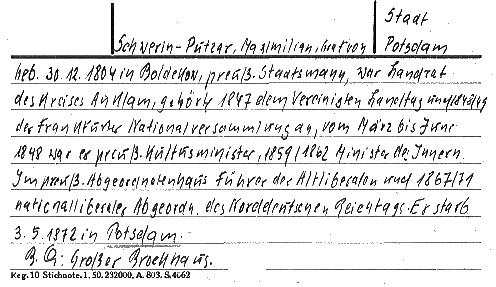 Stadt
Schwerin-Putzar, Maximilian, Graf von Potsdam
geb. 30.12.1804 in Boldekow, preuß. Staatsmann, war Landrat
des Kreises Anklam, gehörte 1847 dem Vereinigten Landtag und 1848/49
der Frankfurter Nationalversammlung an, vom März bis Juni
1848 war er preuß. Kultusminister, 1859/1862 Minister des Innern.
Im preuß. Abgeordnetenhaus Führer der Altliberalen und 1867/71
nationalliberaler Abgeordn. des Norddeutschen Reichstags. Er starb
3.5.1872 in Potsdam.
B. Qu: Großer Brockhaus.
Reg. 10 Stichnote. 1, 50. 232000, A. 803. S. 4062